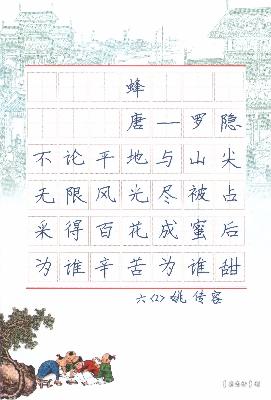 蜂
唐一罗隐
不论平地与山尖
无限风光尽被占
采得百花成蜜后
为谁辛苦为谁甜
六(2)姚倚容